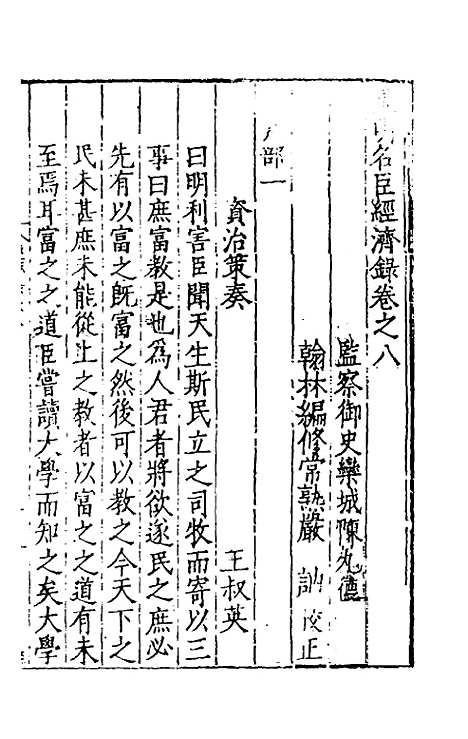 明名臣經濟錄卷之八
監察御史欒城陳九德
翰林編修常熟嚴 訥 校正
部一
資治策奏
王叔英
曰明利害臣聞天生斯民立之司牧而寄以三
事曰庶富教是也為人君者將欲遂民之庶必
先有以富之既富之然後可以教之今天下之
民未甚庶未能從上之教者以富之之道有未
至焉耳富之之道臣嘗讀大學而知之矣大學